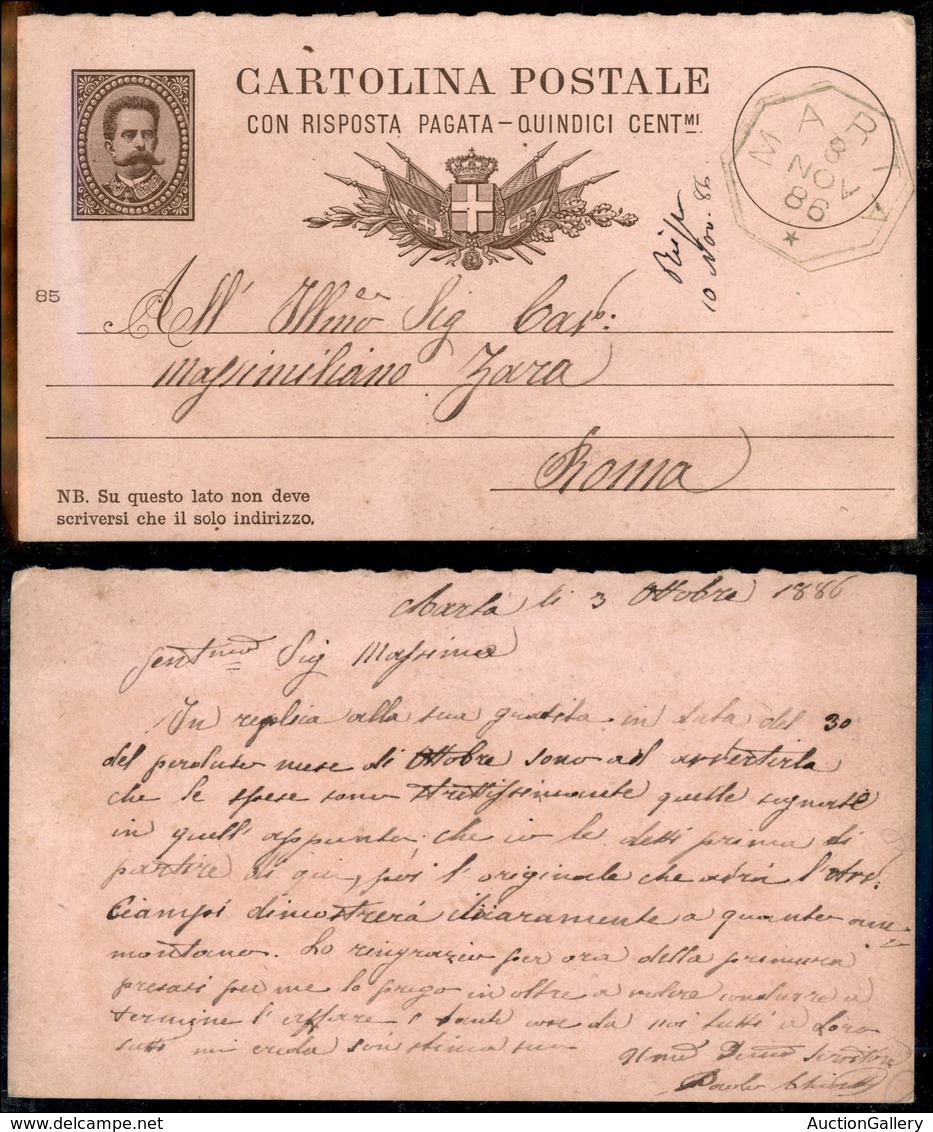 CARTOLINA POSTALE
CON RISPOSTA PAGATA — QUINDICI CENTMI.
MARTA
8
NOV
86
Risp
10 Nov. 86
85
All' Illmo Sig Cav:
Massimiliano Zara
Roma
NB. Su questo lato non deve
scriversi che il solo indirizzo.
Marta li 3 Ottobre 1886
Gentmo Sig Massimo
In replica alla sua gradita in data del 30
del perduto mese di Ottobre sono ad avvertirla
che le spese sono strettissimante quelle segnate
in quell'appunto che io le detti prima di
partire di qui, poi l'originale che avrà l'
Ciampi dimostrerà chiaramente a quanto am
montano. Lo ringrazio per ora della premura
presasi per me lo prego in oltre a volere condurre a
termine l'affare e tante cose da noi tutti a Loro
tutti mi creda con stima suo
Umo Devmo Servitore
Paolo
AuctionGallery